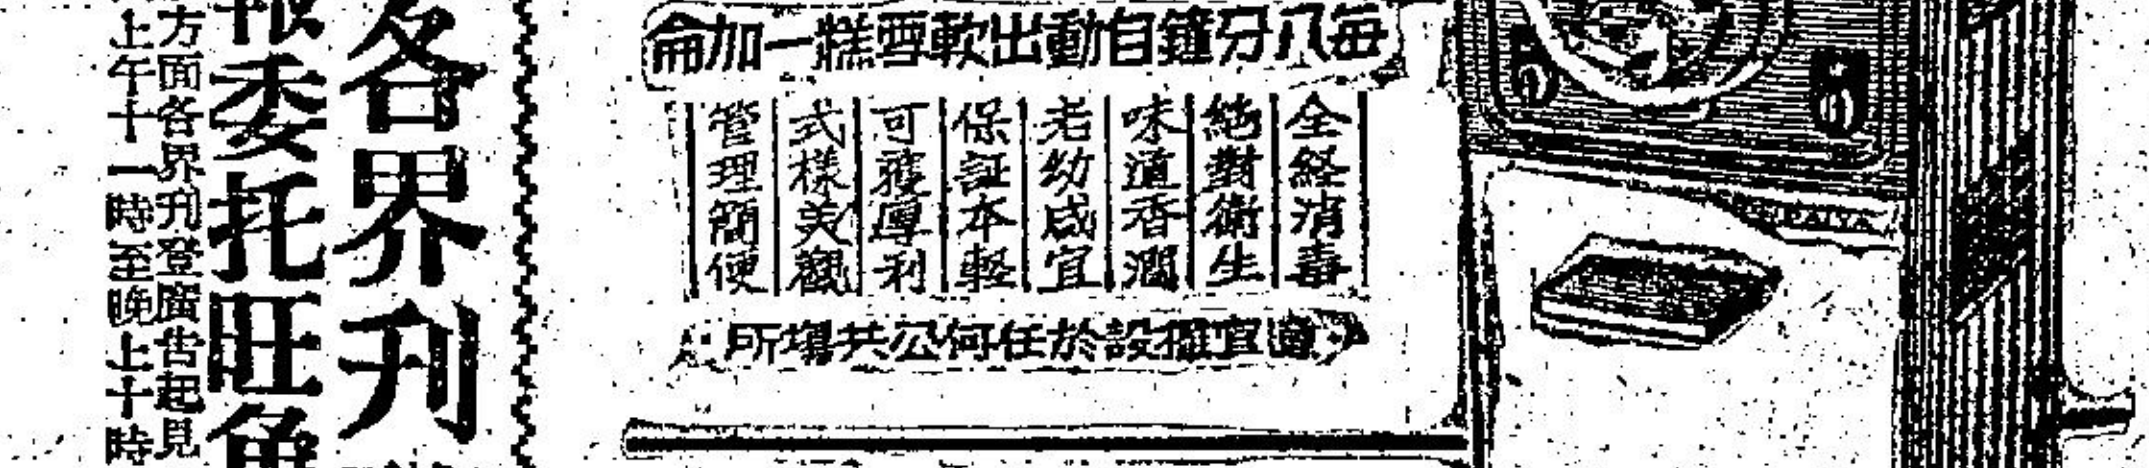 每八分鐘自動出軟雪糕一加侖
全経消毒
絕對衛生
味道香潤
老幼咸宜
保証本輕
可獲厚利
式樣美觀
管理簡便
適宜擺設於任何公共場所
各界刋
報委托旺角
方面各界刋登廣告起見
上午十一時至晚上十時